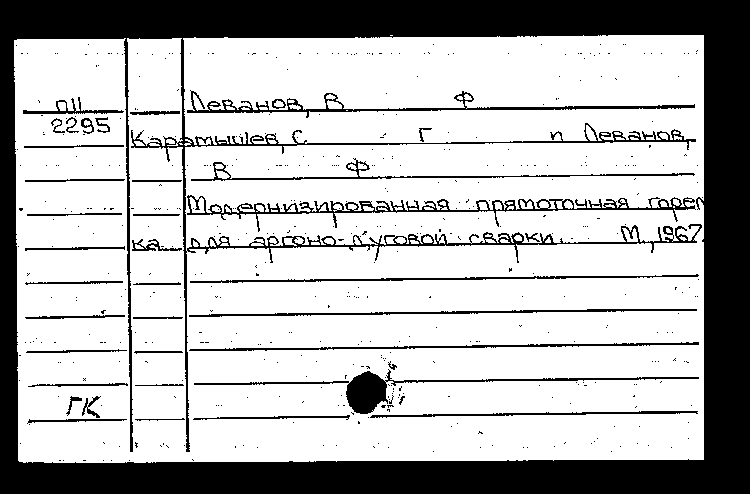 П11 Леванов, В Ф
2295 Карамышев, С Г и Леванов,
В Ф
Модернизированная прямоточная горел
ка для аргоно-дуговой сварки. М., 1967.
ГК